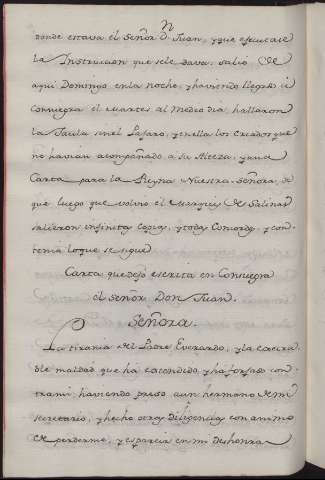 donde estava el Señor D. Juan, y que executase
la Instrucion que se le dava; salio de
aqui Domingo en la noche, y haviendo llegado à
Consuegra el Martes al Medio dia, hallaron
la Jaula sin el Pajaro, y en ella los Criados que
no havian acompañado a su Alteza, y una
Carta para la Reyna Nuestra Señora, de
que luego que volvio el Marques de Salinas
salieron infinitas copias, y todas Conformes, y con-
tenia lo que se sigue
Carta que dejò escrita en Consuegra
el Señor Don Juan.
Señora.
La tirania del Padre Everardo, y la execra-
ble maldad que ha extendido, y ha forjado con-
tra mi, haviendo preso a un hermano de mi
secretario, y hecho otras diligencias con animo
de perderme, y esparcir en mi deshonra